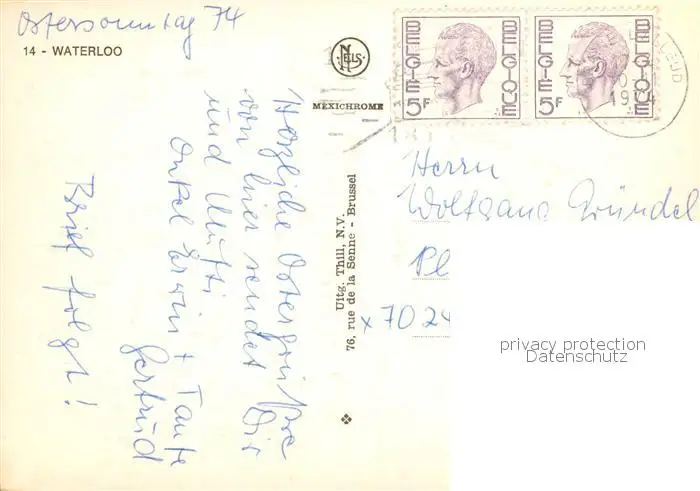 Ostersonntag 74
14 - WATERLOO
NELS
MEXICHROME
BELGIE BELGIQUE 5F
BELGIE BELGIQUE 5F
1974
Herzliche Ostergrüße
von hier sendet Dir
und Mutti
Onkel Erwin + Tante
Gertrud
Brief folgt!
Uitg. Thill, N.V.
76, rue de la Senne - Brussel
Herrn
Wolfgang Gründel
Pl
x 7024
privacy protection
Datenschutz